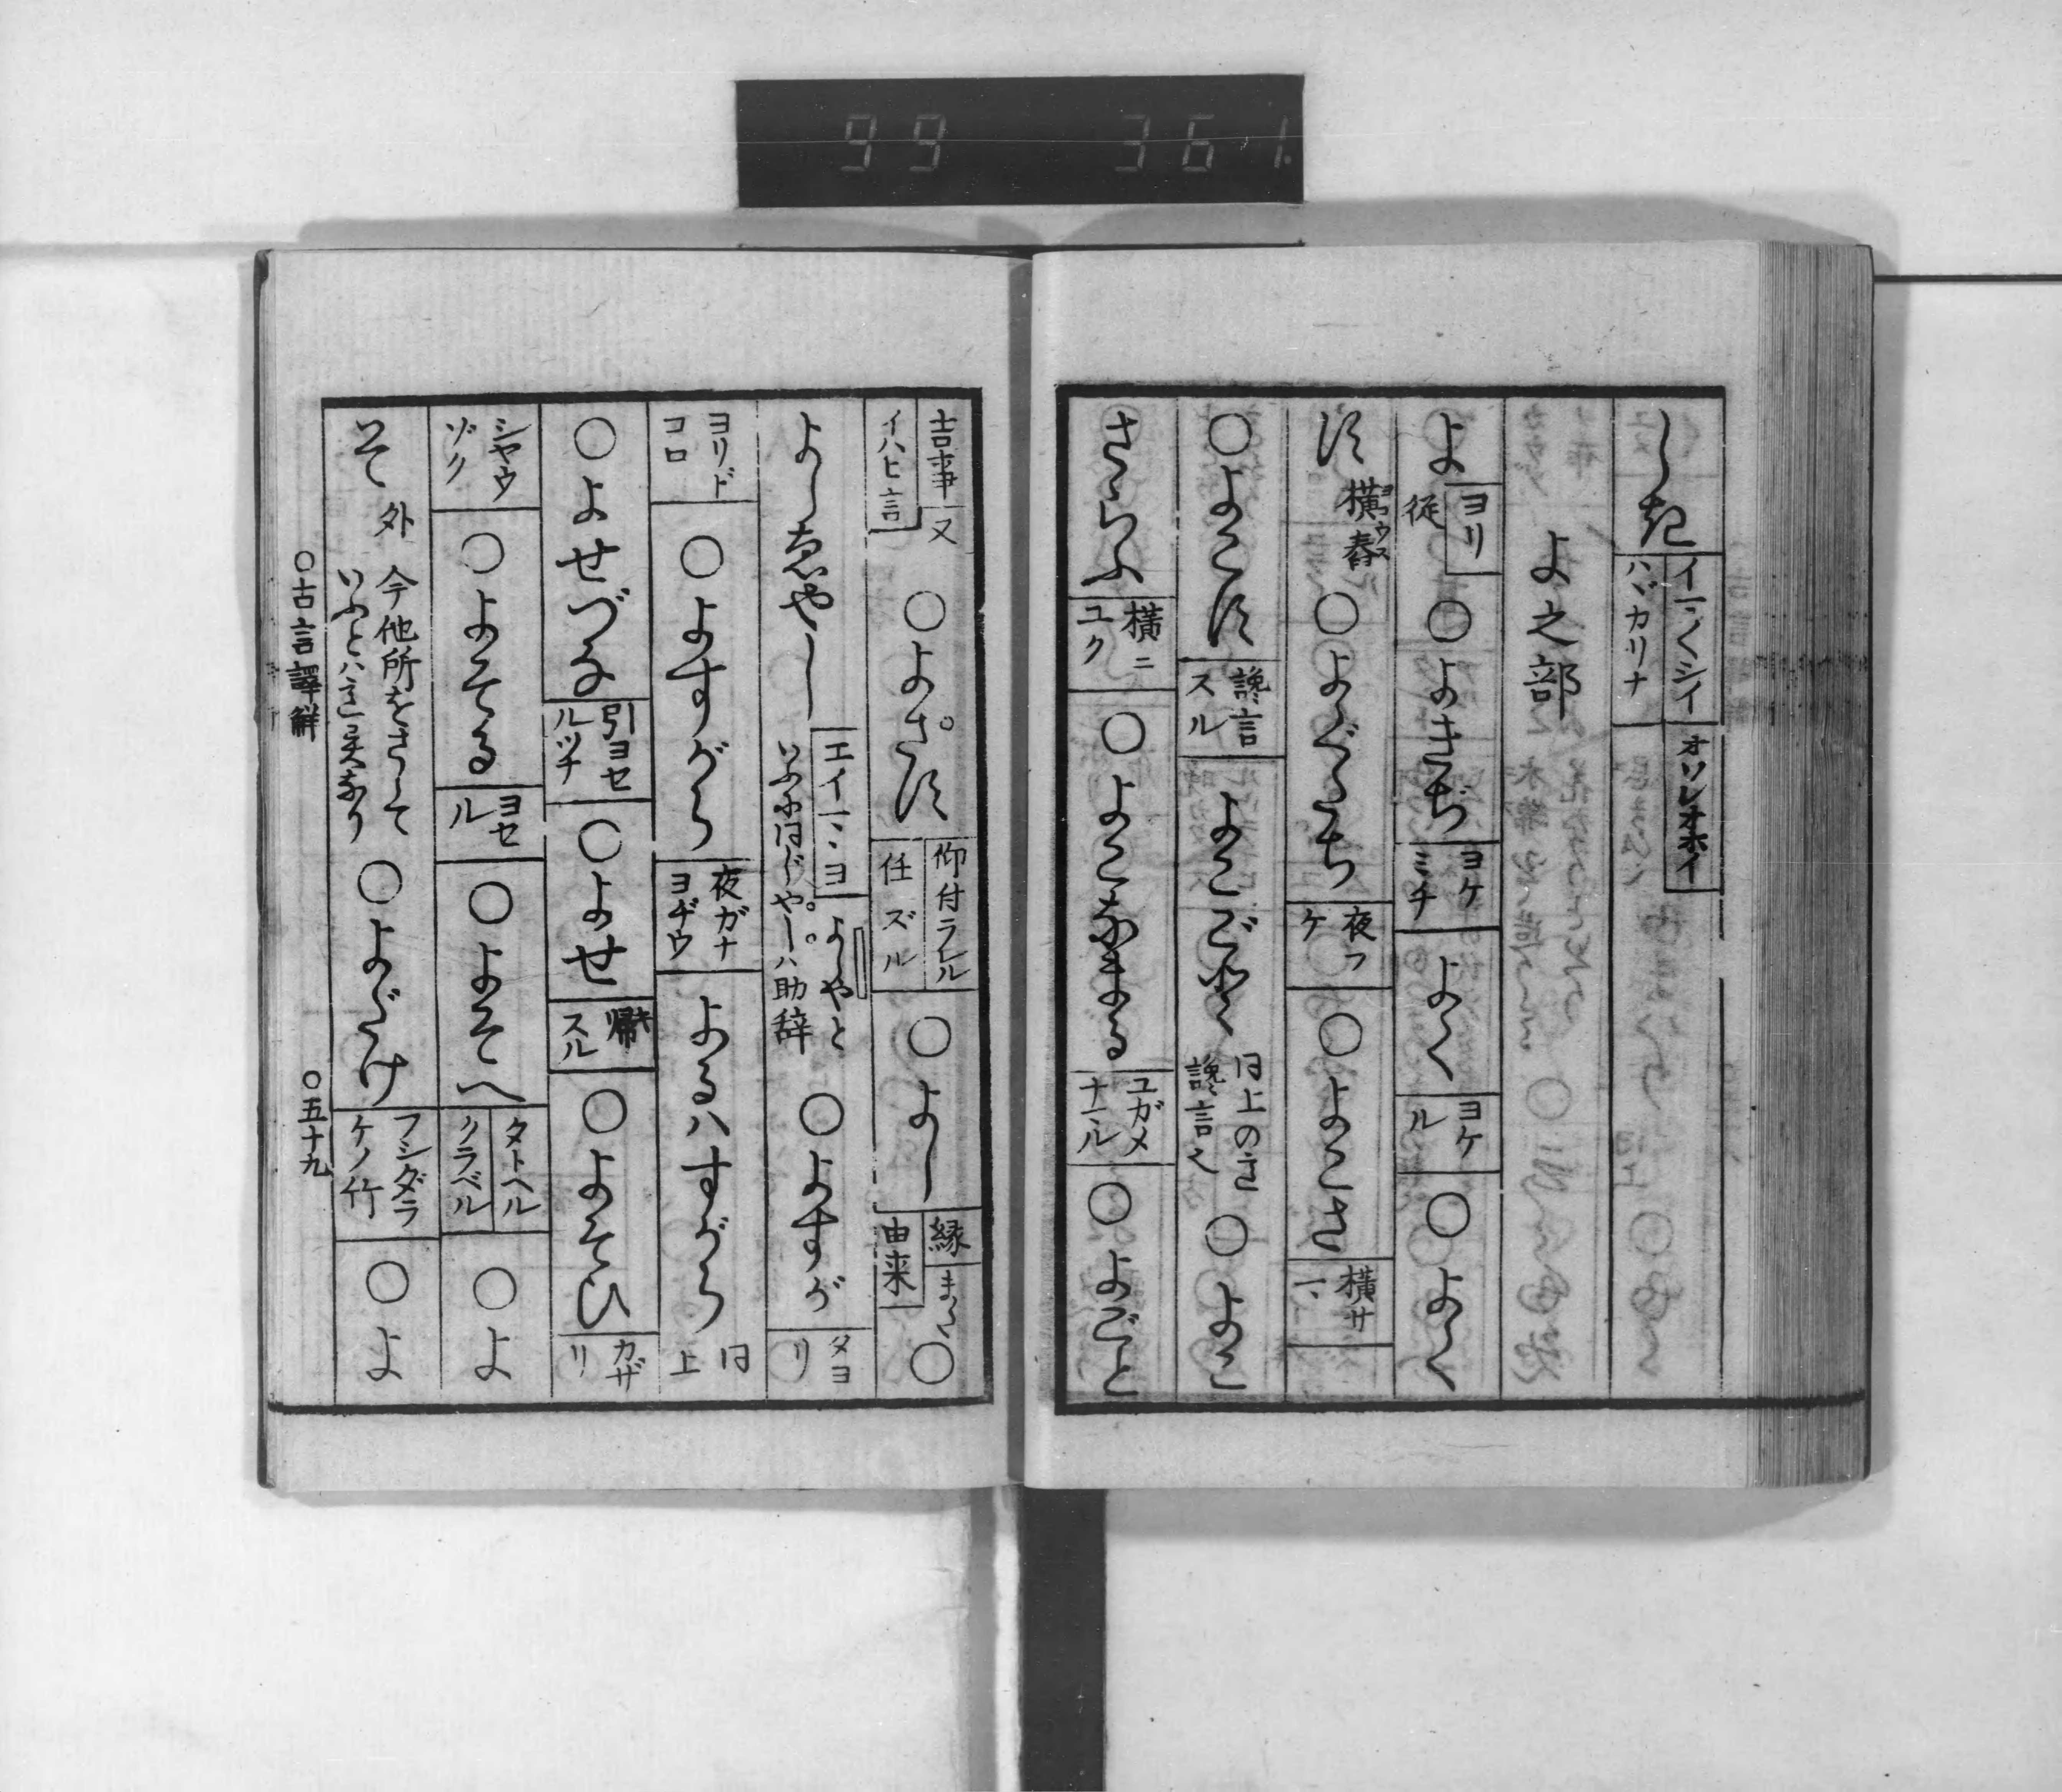 99 361.
しき イマ〳〵シイ ハヾカリナ オソレオホイ
よ之部
よ ヨリ 従 ○よきぢ ヨケミチ よく ヨケル ○よく
す 横舂 ヨコウス ○よぐたち 夜フケ ○よこさ 横サマ
○よこす 讒言スル よこごと 同上の 讒言 ○よこ
さらふ 横ニユク ○よこなまる ユガメナマル ○よごと
吉事 又 イハヒ言 ○よさす 仰付ラレル 任ズル ○よし 縁 由来 ○
よしゑやし エイマヽヨ よしやと いふに同じ やしハ助辞 ○よすが タヨリ
ヨリドコロ ○よすがら 夜ガナヨヂウ よるハすがら 同上
○よせづな 引ヨセルツナ ○よせ 帰スル ○よそひ カザリ
シヤウゾク ○よそる ヨセル ○よそへ タトヘル クラベル ○よ
そ 外 今他所をさして いふとハ ○よだけ フシダラケノ竹 ○よ
○古言譯解 ○五十九